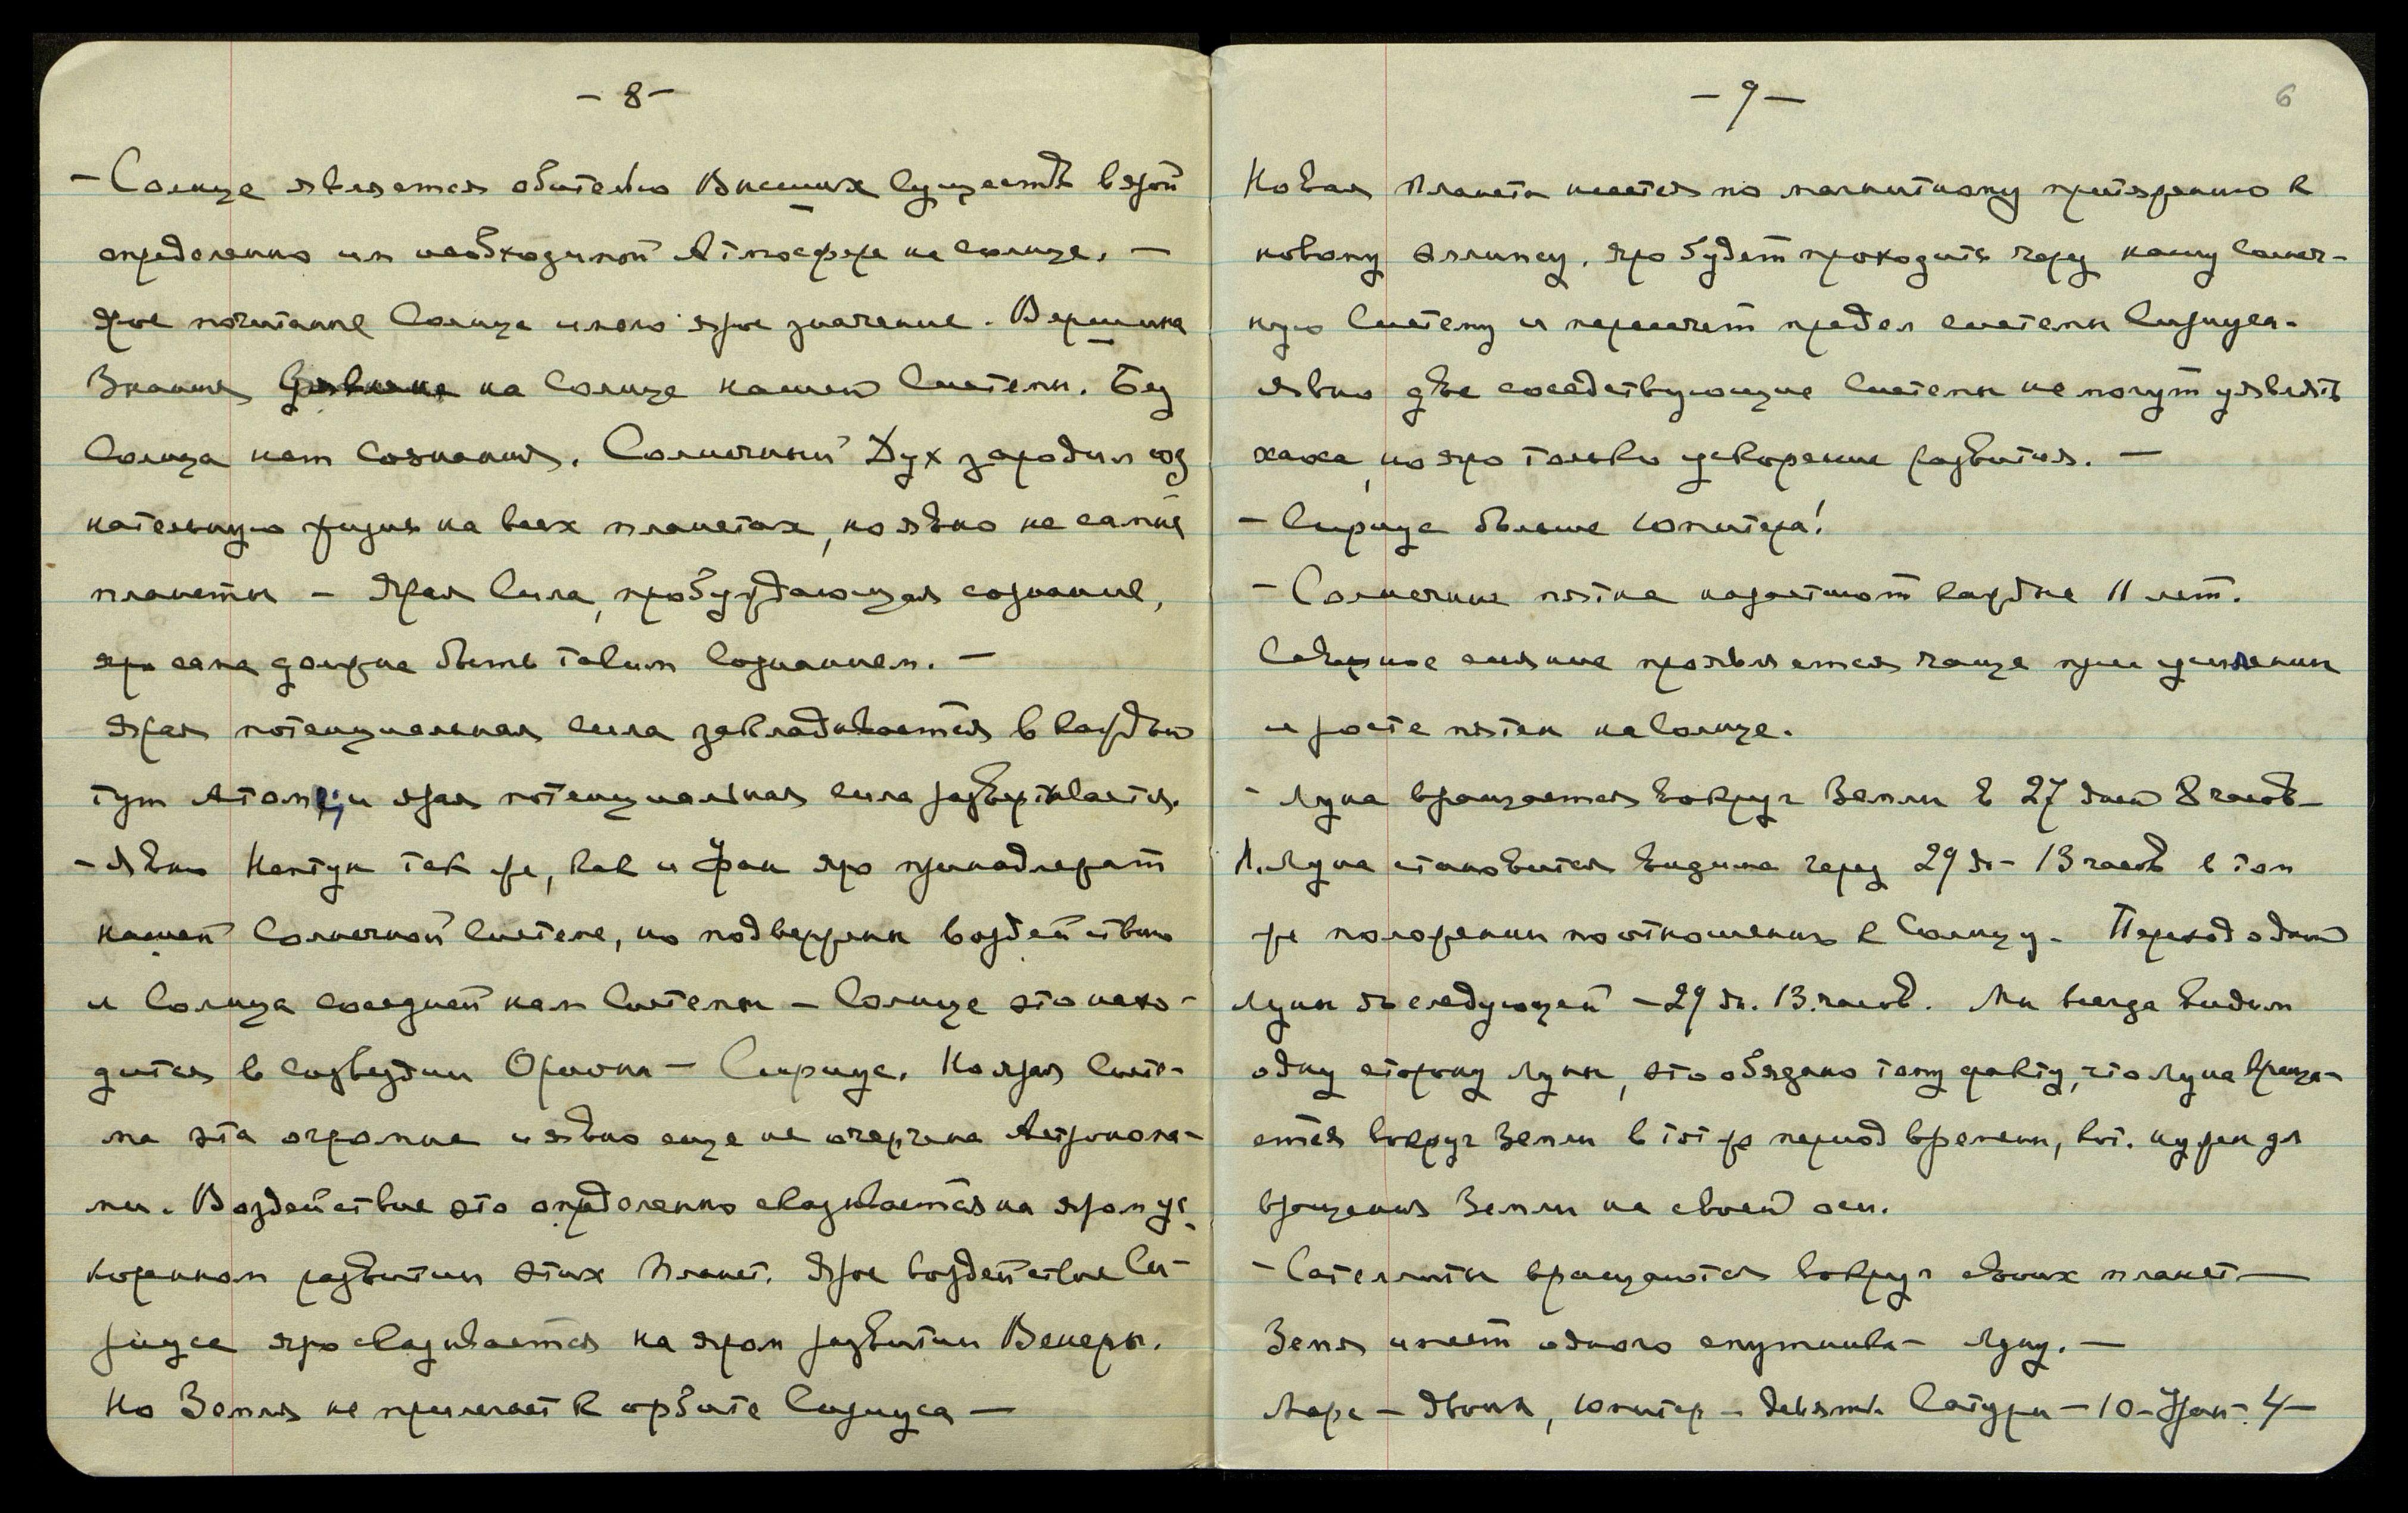 — 8 —
— Солнце является обителью Высших Существ в ярой
определенно им необходимой Атмосфере на солнце. —
Ярое почитание Солнца имело ярое значение. Вершина
Знания на Солнце нашей Системы. Без
Солнца нет Сознания. Солнечный Дух зародил соз
нательную жизнь на всех планетах, но явно не самые
планеты — Ярая Сила, пробуждающая сознание,
яро сама должна быть таким Сознанием. —
Ярая потенциальная сила закладывается в каждый
тут Атом; и ярая потенциальная сила развертывается.
— Явно Нептун так же, как и Уран яро принадлежат
нашей Солнечной Системе, но подвержены воздействию
и Солнца соседней нам Системы — Солнце это нахо-
дится в созвездии Ориона — Сириус. Но ярая Систе-
ма эта огромна и явно еще не очерчена Астронома-
ми. Воздействие это определенно сказывается на яром ус-
коренном развитии этих Планет. Ярое воздействие Си-
риуса яро сказывается на яром развитии Венеры.
Но Земля не прилегает к орбите Сириуса —
— 9 —
6
Новая Планета несется по магнитному притяжению к
новому эллипсу. Яро будет проходить через нашу Солнеч-
ную Систему и пересечет предел системы Сириуса.
Явно две соседствующие Системы не могут уявлять
хаоса, но яро только ускорение развития. —
— Сириус больше Юпитера!
— Солнечные пятна нарастают каждые 11 лет.
Северное сияние проявляется чаще при усилении
и росте пятен на Солнце.
— Луна вращается вокруг Земли в 27 дней 8 часов —
Л. Луна становится видима через 29 дн — 13 часов в том
же положении по отношению к Солнцу. Период одной
Луны до следующей — 29 дн. 13 часов. Мы всегда видим
одну сторону Луны, это обязано тому факту, что Луна враща-
ется вокруг Земли в тот же период времени, кот. нужен дл
вращения Земли на своей оси.
— Сателлиты вращаются вокруг своих планет —
Земя имеет одного спутника — Луну. —
Марс — двоих, Юпитер — девять. Сатурн — 10 — Уран — 4 —